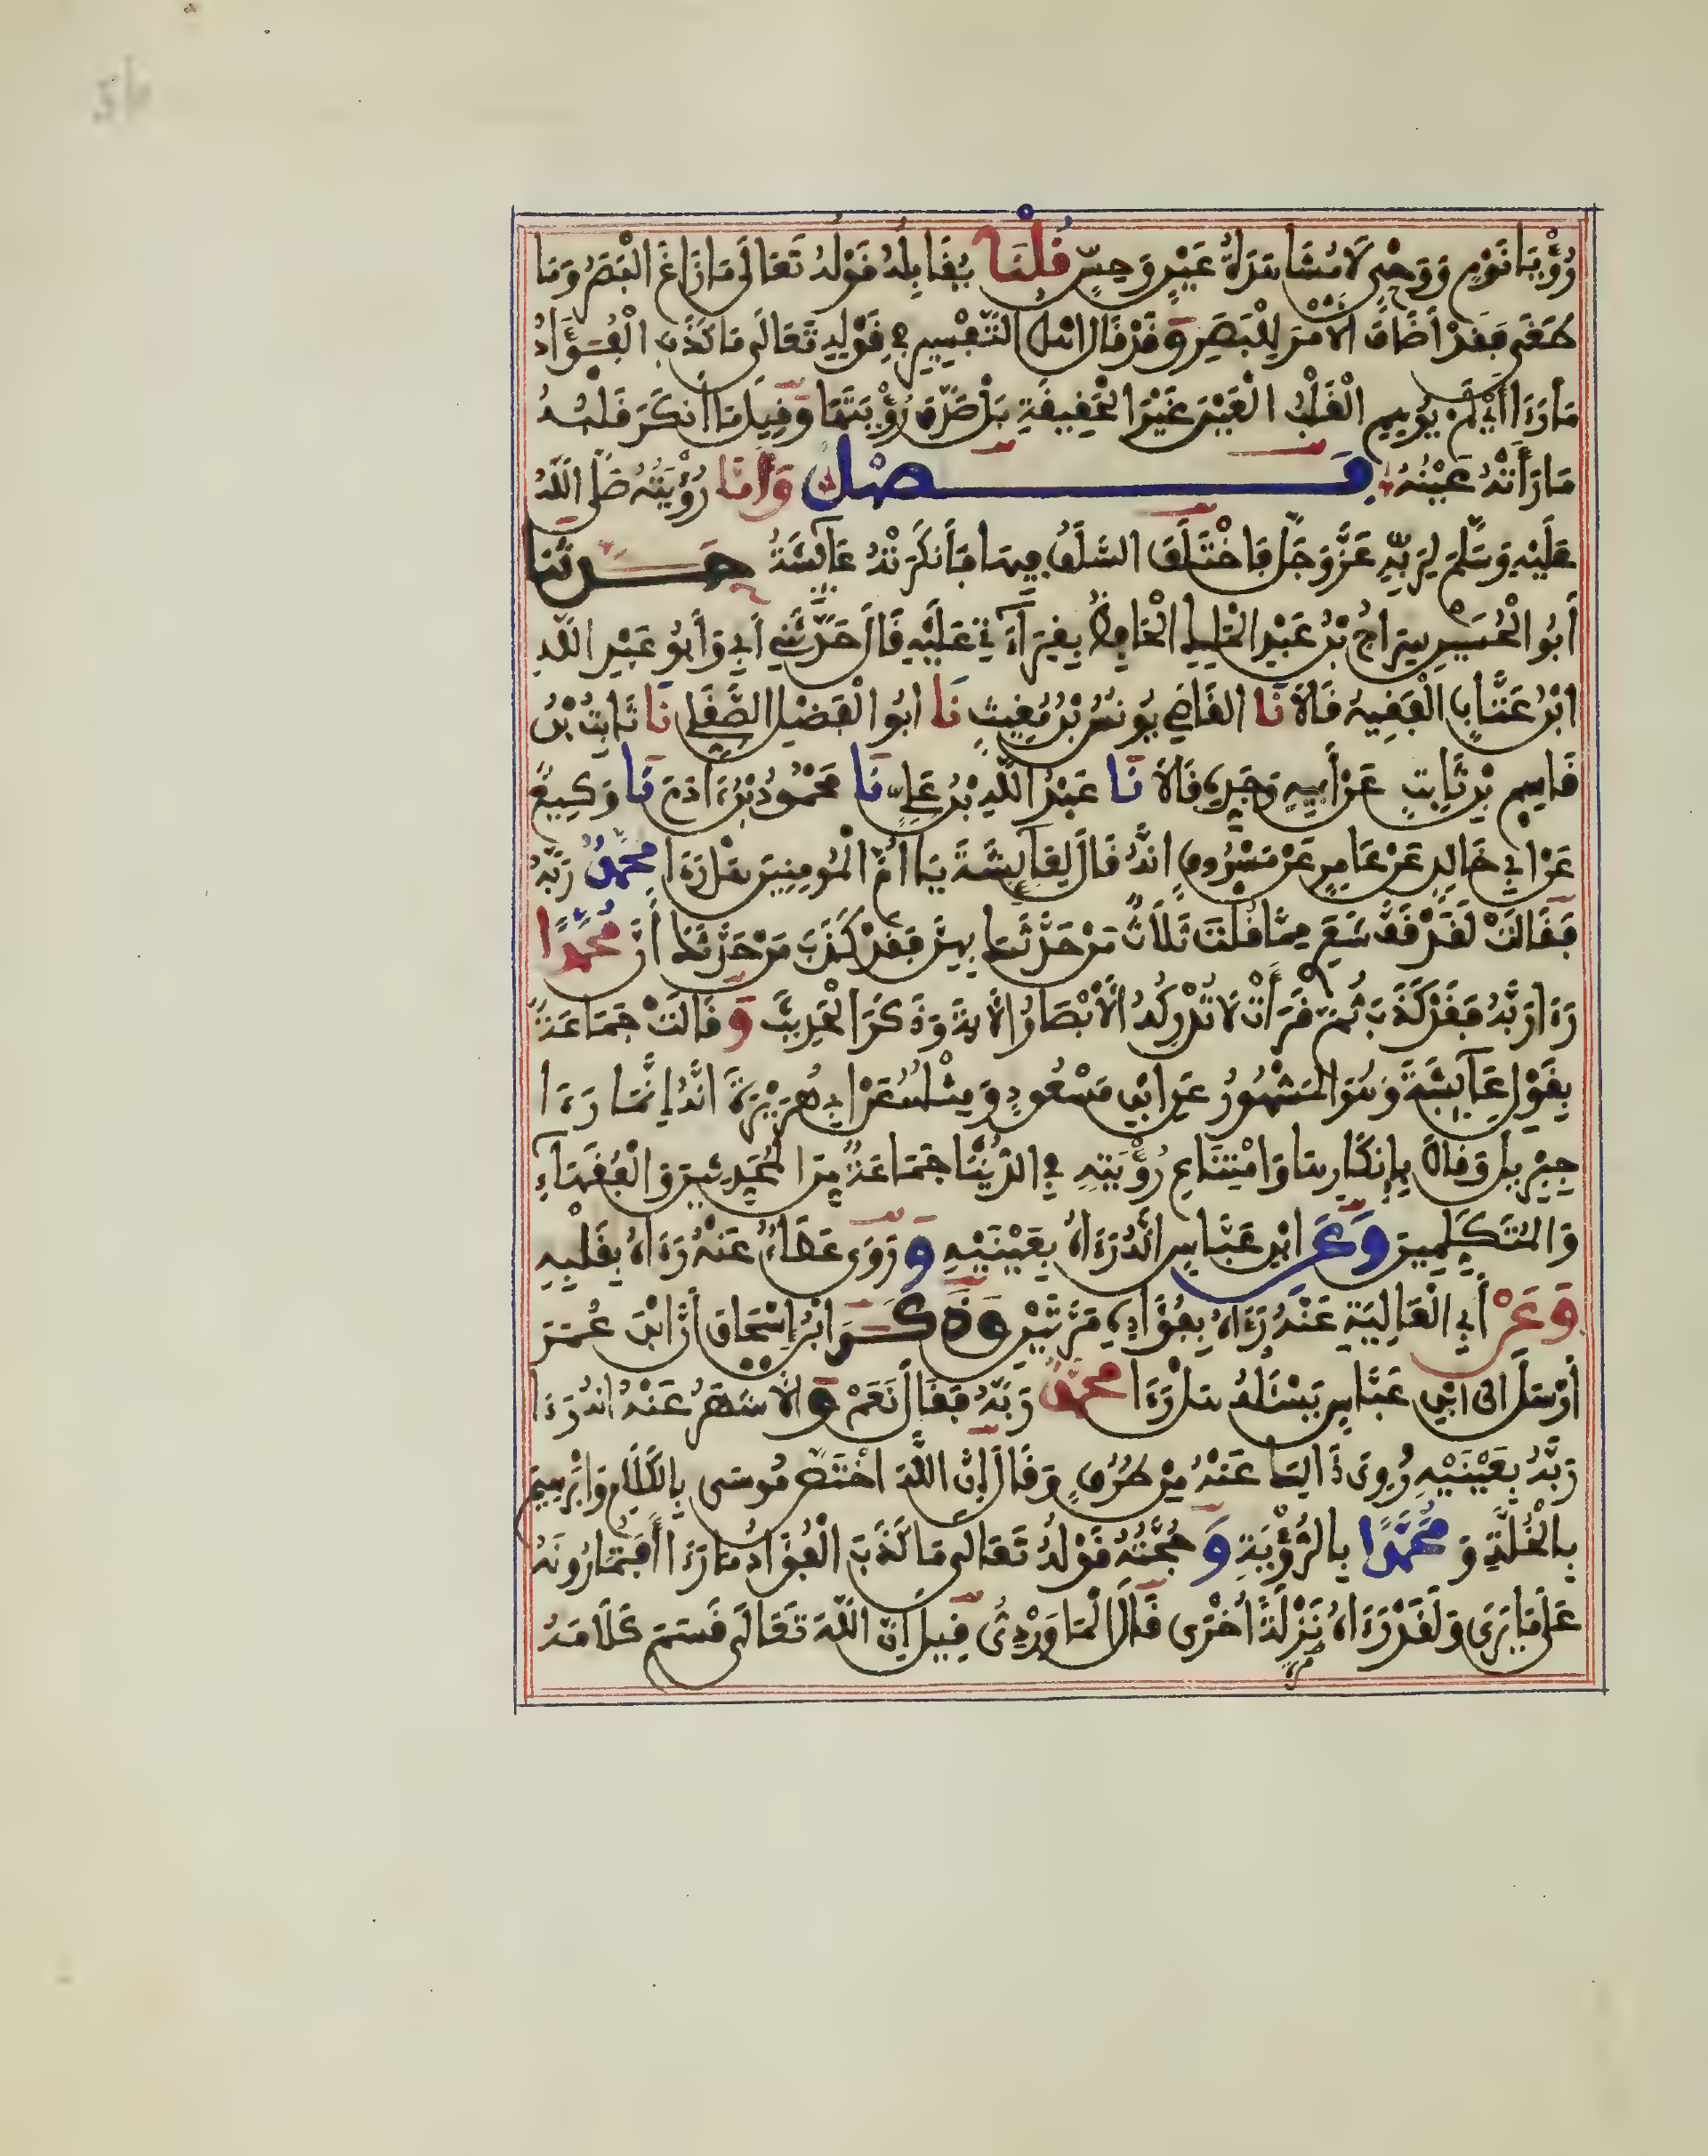 رُؤْيَا نَوْمٍ وَوَحْيٍ لَا مُشَاهَدَةُ عَيْنٍ وَحِسٍّ قُلْنَا يُقَابِلُهُ قَوْلُهُ تَعَالَى مَا زَاغَ الْبَصَرُ وَمَا
طَغَى فَقَدْ أَضَافَ الْأَمْرَ لِلْبَصَرِ وَقَدْ قَالَ أَهْلُ التَّفْسِيرِ فِي قَوْلِهِ تَعَالَى مَا كَذَبَ الْفُؤَادُ
مَا رَءَا أَيْ لَمْ يُوهِمِ الْقَلْبُ الْعَيْنَ غَيْرَ الْحَقِيقَةِ بَلْ صَدَّقَ رُؤْيَتَهَا وَقِيلَ مَا أَنْكَرَ قَلْبُهُ
مَا رَأَتْهُ عَيْنُهُ فَصْلٌ وَأَمَّا رُؤْيَتُهُ صَلَّى اللَّهُ
عَلَيْهِ وَسَلَّمَ لِرَبِّهِ عَزَّ وَجَلَّ فَاخْتَلَفَ السَّلَفُ فِيهَا فَأَنْكَرَتْهُ عَائِشَةُ حَدَّثَنَا
أَبُو الْحُسَيْنِ سِرَاجُ بْنُ عَبْدِ الْمَلِكِ الْحَافِظُ بِقِرَاءَتِي عَلَيْهِ قَالَ حَدَّثَنِي أَبِي وَأَبُو عَبْدِ اللَّهِ
ابْنُ عَتَّابٍ الْفَقِيهُ قَالَا نَا الْقَاضِي يُونُسُ بْنُ مُغِيثٍ نَا أَبُو الْفَضْلِ الصَّقَلِّي نَا ثَابِتُ بْنُ
قَاسِمِ بْنِ ثَابِتٍ عَنْ أَبِيهِ وَجَدِّهِ قَالَا نَا عَبْدُ اللَّهِ بْنُ عَلِيٍّ نَا مَحْمُودُ بْنُ ءَادَمَ نَا وَكِيعٌ
عَنِ ابْنِ أَبِي خَالِدٍ عَنْ عَامِرٍ عَنْ مَسْرُوقٍ أَنَّهُ قَالَ لِعَائِشَةَ يَا أُمَّ الْمُومِنِينَ هَلْ رَءَا مُحَمَّدٌ رَبَّهُ
فَقَالَتْ لَقَدْ قَفَّ شَعَرِي مِمَّا قُلْتَ ثَلَاثٌ مَنْ حَدَّثَكَ بِهِنَّ فَقَدْ كَذَبَ مَنْ حَدَّثَكَ أَنَّ مُحَمَّدًا
رَءَا رَبَّهُ فَقَدْ كَذَبَ ثُمَّ قَرَأَتْ لَا تُدْرِكُهُ الْأَبْصَارُ الْآيَةَ وَذَكَرَ الْحَدِيثَ وَقَالَتْ جَمَاعَةٌ
بِقَوْلِ عَائِشَةَ وَهُوَ الْمَشْهُورُ عَنِ ابْنِ مَسْعُودٍ وَمِثْلُهُ عَنْ أَبِي هُرَيْرَةَ أَنَّهُ إِنَّمَا رَءَا
جِبْرِيلَ وَقَالَ بِإِنْكَارِ هَذَا وَامْتِنَاعِ رُؤْيَتِهِ فِي الدُّنْيَا جَمَاعَةٌ مِنَ الْمُحَدِّثِينَ وَالْفُقَهَاءِ
وَالْمُتَكَلِّمِينَ وَعَنِ ابْنِ عَبَّاسٍ أَنَّهُ رَءَاهُ بِعَيْنَيْهِ وَرَوَى عَطَاءٌ عَنْهُ رَءَاهُ بِقَلْبِهِ
وَعَنْ أَبِي الْعَالِيَةِ عَنْهُ رَءَاهُ بِفُؤَادِهِ مَرَّتَيْنِ وَذَكَرَ ابْنُ إِسْحَاقَ أَنَّ ابْنَ عُمَرَ
أَرْسَلَ إِلَى ابْنِ عَبَّاسٍ يَسْئَلُهُ هَلْ رَءَا مُحَمَّدٌ رَبَّهُ فَقَالَ نَعَمْ وَالْأَشْهَرُ عَنْهُ أَنَّهُ رَءَا
رَبَّهُ بِعَيْنَيْهِ رُوِيَ ذَالِكَ عَنْهُ مِنْ طُرُقٍ وَقَالَ إِنَّ اللَّهَ اخْتَصَّ مُوسَى بِالْكَلَامِ وَإِبْرَاهِيمَ
بِالْخُلَّةِ وَمُحَمَّدًا بِالرُّؤْيَةِ وَحُجَّتُهُ قَوْلُهُ تَعَالَى مَا كَذَبَ الْفُؤَادُ مَا رَءَا أَفَتُمَارُونَهُ
عَلَى مَا يَرَى وَلَقَدْ رَءَاهُ نَزْلَةً أُخْرَى قَالَ الْمَاوَرْدِيُّ قِيلَ إِنَّ اللَّهَ تَعَالَى قَسَمَ كَلَامَهُ